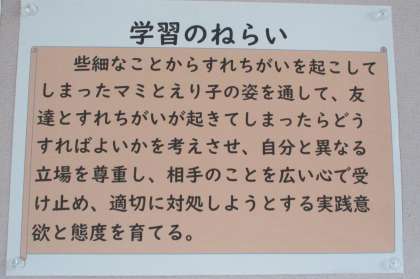 学習のねらい
些細なことからすれちがいを起こして
しまったマミとえり子の姿を通して、友
達とすれちがいが起きてしまったらどう
すればよいかを考えさせ、自分と異なる
立場を尊重し、相手のことを広い心で受
け止め、適切に対処しようとする実践意
欲と態度を育てる。